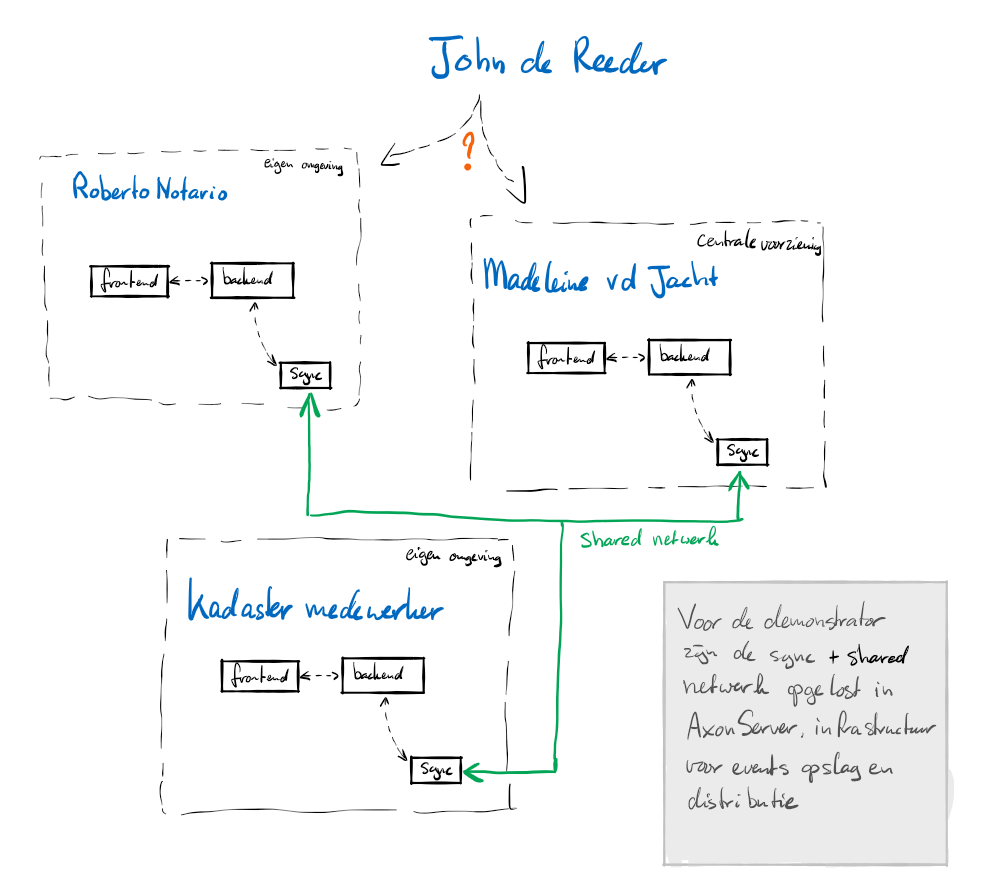 John de Reeder
?
eigen omgeving
Roberto Notario
frontend
backend
Sync
Centrale voorziening
Madeleine vd Jacht
frontend
backend
Sync
Shared netwerk
eigen omgeving
Kadaster medewerker
frontend
backend
Sync
Voor de demonstrator
zijn de sync + shared
netwerk opgelost in
AxonServer, infrastructuur
voor events opslag en
distributie